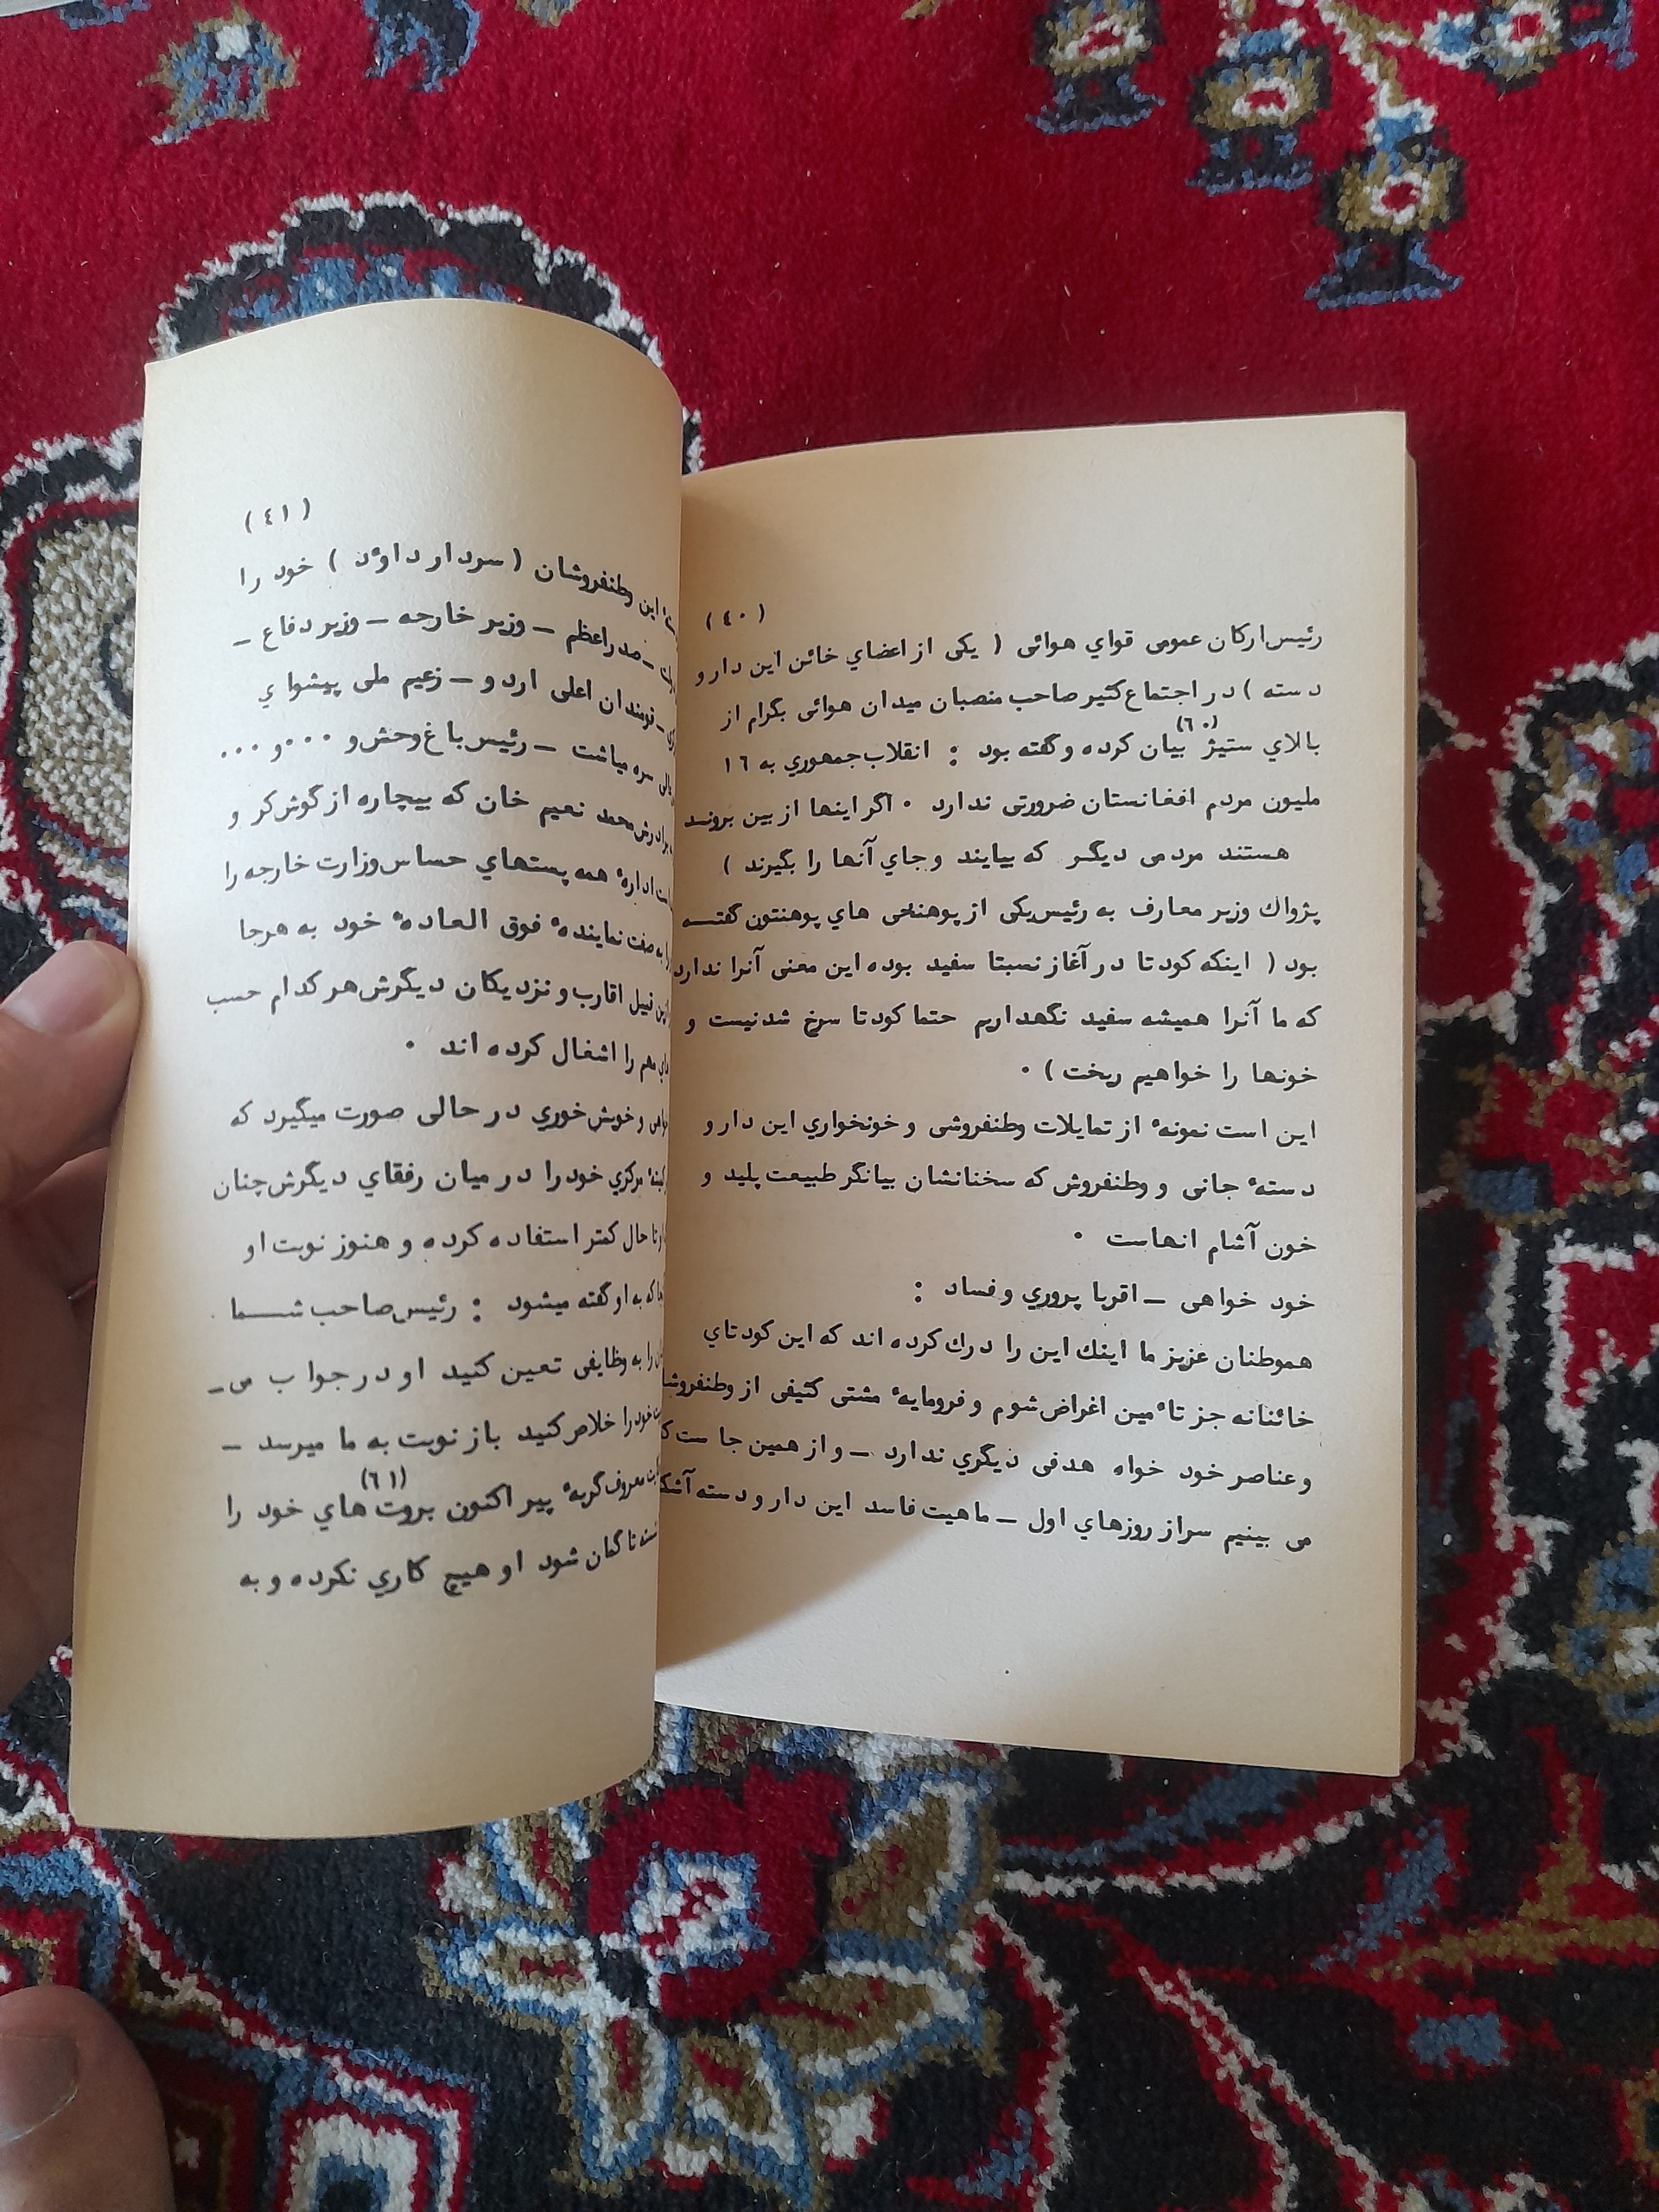 ( ٤٠ )
رئیس ارکان عمومی قواي هوائی ( یکی از اعضاي خائن این دار و
دسته ) در اجتماع کثیر صاحب منصبان میدان هوائی بگرام از
بالاي ستیژ (٦٠) بیان کرده و گفته بود : انقلاب جمهوري به ١٦
ملیون مردم افغانستان ضرورتی ندارد ٠ اگر اینها از بین بروند
هستند مردمی دیگر که بیایند و جاي آنها را بگیرند )
پژواك وزیر معارف به رئیس یکی از پوهنځی هاي پوهنتون گفته
بود ( اینکه کودتا در آغاز نسبتا سفید بوده این معنی آنرا ندارد
که ما آنرا همیشه سفید نگهداریم حتما کودتا سرخ شدنیست و
خونها را خواهیم ریخت ) ٠
این است نمونهٔ از تمایلات وطنفروشی و خونخواري این دار و
دستهٔ جانی و وطنفروش که سخنانشان بیانگر طبیعت پلید و
خون آشام انهاست ٠
خود خواهی ــ اقربا پروري و فساد :
هموطنان عزیز ما اینك این را درك کرده اند که این کودتاي
خائنانه جز تاٴمین اغراض شوم و فرومایهٔ مشتی کثیفی از
و عناصر خود خواه هدفی دیگري ندارد ــ و از همین جا ست
می بینیم سراز روزهاي اول ــ ماهیت فاسد این دار و دسته
( ٤١ )
این وطنفروشان ( سردار داوٴد ) خود را
ــ صدراعظم ــ وزیر خارجه ــ وزیر دفاع ــ
ــ قومندان اعلی اردو ــ زعیم ملی پیشواي
سره میاشت ــ رئیس باغ وحش و ٠٠٠ و ٠٠٠
برادرش محمد نعیم خان که بیچاره از گوش کر و
ادارهٔ همه پستهاي حساس وزارت خارجه را
به صفت نمایندهٔ فوق العادهٔ خود به هرجا
قبیل اقارب و نزدیکان دیگرش هر کدام حسب
مهم را اشغال کرده اند ٠
و خوش خوري در حالی صورت میگیرد که
مرکزي خود را در میان رفقاي دیگرش چنان
تا حال کمتر استفاده کرده و هنوز نوبت او
که به او گفته میشود : رئیس صاحب شما
را به وظایفی تعین کنید او در جواب می ــ
خود را خلاص کنید باز نوبت به ما میرسد ــ
معروف گربهٔ پیر اکنون بروت (٦١) هاي خود را
تا گمان شود او هیچ کاري نکرده و به